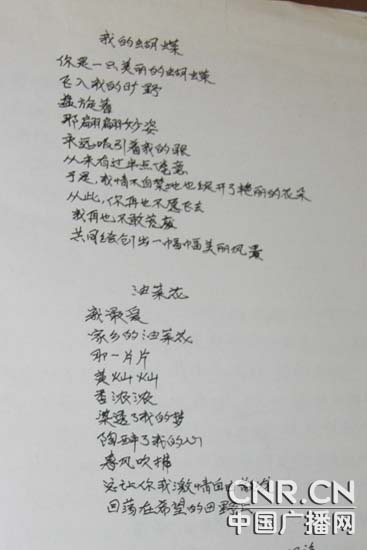 我的蝴蝶
你是一只美丽的蝴蝶
飞入我的旷野
盘旋着
那翩翩妙姿
永远吸引着我的眼
从未有过半点倦意
于是,我情不自禁地也绽开了艳丽的花朵
从此,你再也不愿飞去
我再也不敢荒芜
共同绘创出一幅幅美丽风景
油菜花
我最爱
家乡的油菜花
那一片片
黄灿灿
香浓浓
染透了我的梦
陶醉了我的心
春风吹拂
这让你我激情
回荡在希望的田野上
CNR.CN
中国广播网